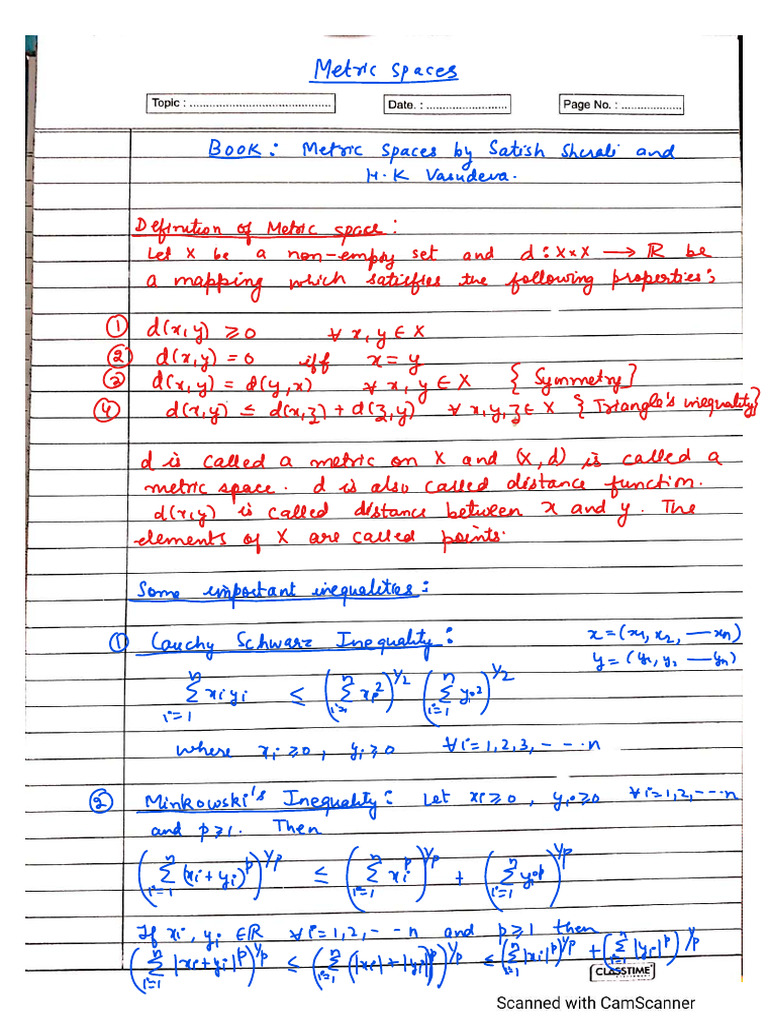 Metric spaces
Topic : ........................................... Date. : .......................... Page No. : ...................
Book : Metric spaces by Satish Shirali and
H. K Vasudeva.
Definition of Metric space :
Let X be a non-empty set and d : X×X → ℝ be
a mapping which satisfies the following properties :
① d(x,y) ≥ 0 ∀ x,y ∈ X
② d(x,y) = 0 iff x = y
③ d(x,y) = d(y,x) ∀ x,y ∈ X {Symmetry}
④ d(x,y) ≤ d(x,z) + d(z,y) ∀ x,y,z ∈ X {Triangle's inequality}
d is called a metric on X and (X,d) is called a
metric space. d is also called distance function.
d(x,y) is called distance between x and y. The
elements of X are called points.
Some important inequalities :
① Cauchy Schwarz Inequality : x = (x₁, x₂, --- xₙ)
y = (y₁, y₂ --- yₙ)
∑_{i=1}^{n} xᵢyᵢ ≤ (∑_{i=1}^{n} xᵢ²)^{1/2} (∑_{i=1}^{n} yᵢ²)^{1/2}
where xᵢ ≥ 0, yᵢ ≥ 0 ∀ i = 1, 2, 3, - - -. n
② Minkowski's Inequality : Let xᵢ ≥ 0, yᵢ ≥ 0 ∀ i = 1, 2, --- n
and p ≥ 1. Then
(∑_{i=1}^{n} (xᵢ + yᵢ)^p)^{1/p} ≤ (∑_{i=1}^{n} xᵢ^p)^{1/p} + (∑_{i=1}^{n} yᵢ^p)^{1/p}
If xᵢ, yᵢ ∈ ℝ ∀ i = 1, 2, - - n and p ≥ 1 then
(∑_{i=1}^{n} |xᵢ + yᵢ|^p)^{1/p} ≤ (∑_{i=1}^{n} (|xᵢ| + |yᵢ|)^p)^{1/p} ≤ (∑_{i=1}^{n} |xᵢ|^p)^{1/p} + (∑_{i=1}^{n} |yᵢ|^p)^{1/p}
CLASSTIME
Scanned with CamScanner